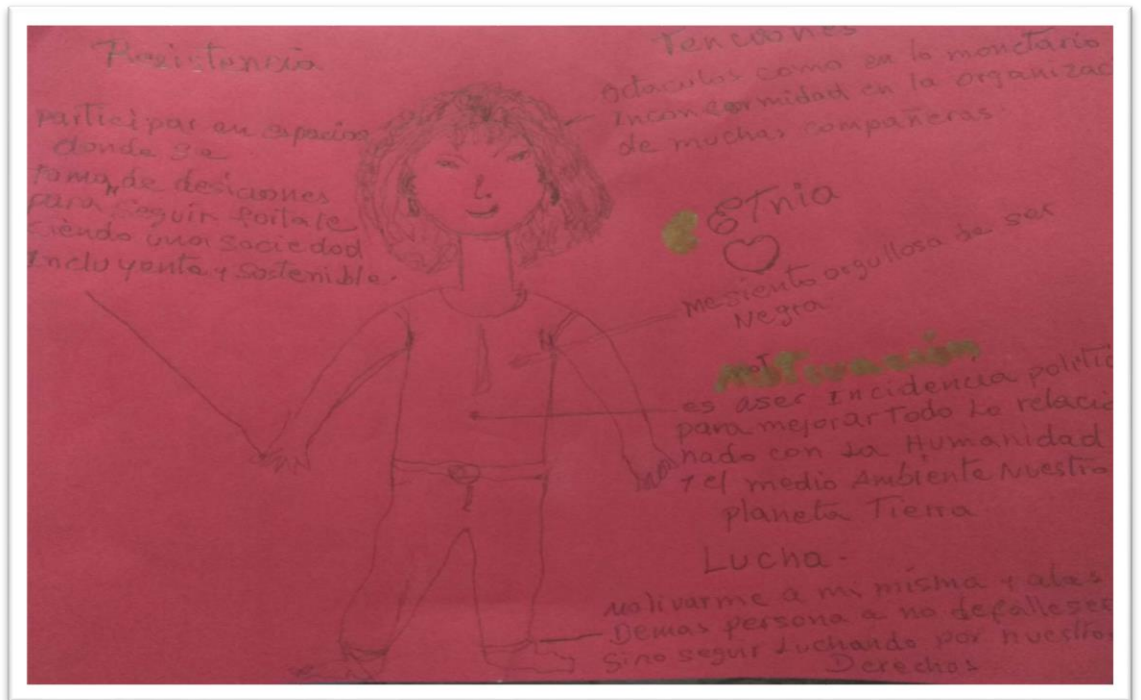 Resistencia
participar en espacios
donde se
toma de desiciones
para seguir fortale
ciendo una sociedad
Incluyente y sostenible.
Tenciones
octaculos como en lo monetario
Inconformidad en la organizac
de muchas compañeras.
ETnia
me siento orgullosa de ser
Negra
moTivación
es aser Incidencia politic
para mejorar Todo Lo relacio
nado con La Humanidad
y el medio Ambiente Nuestro
planeta Tierra
Lucha.
motivarme a mi misma y alas
Demas persona a no defalleser
Sino seguir Luchando por nuestros
Derechos